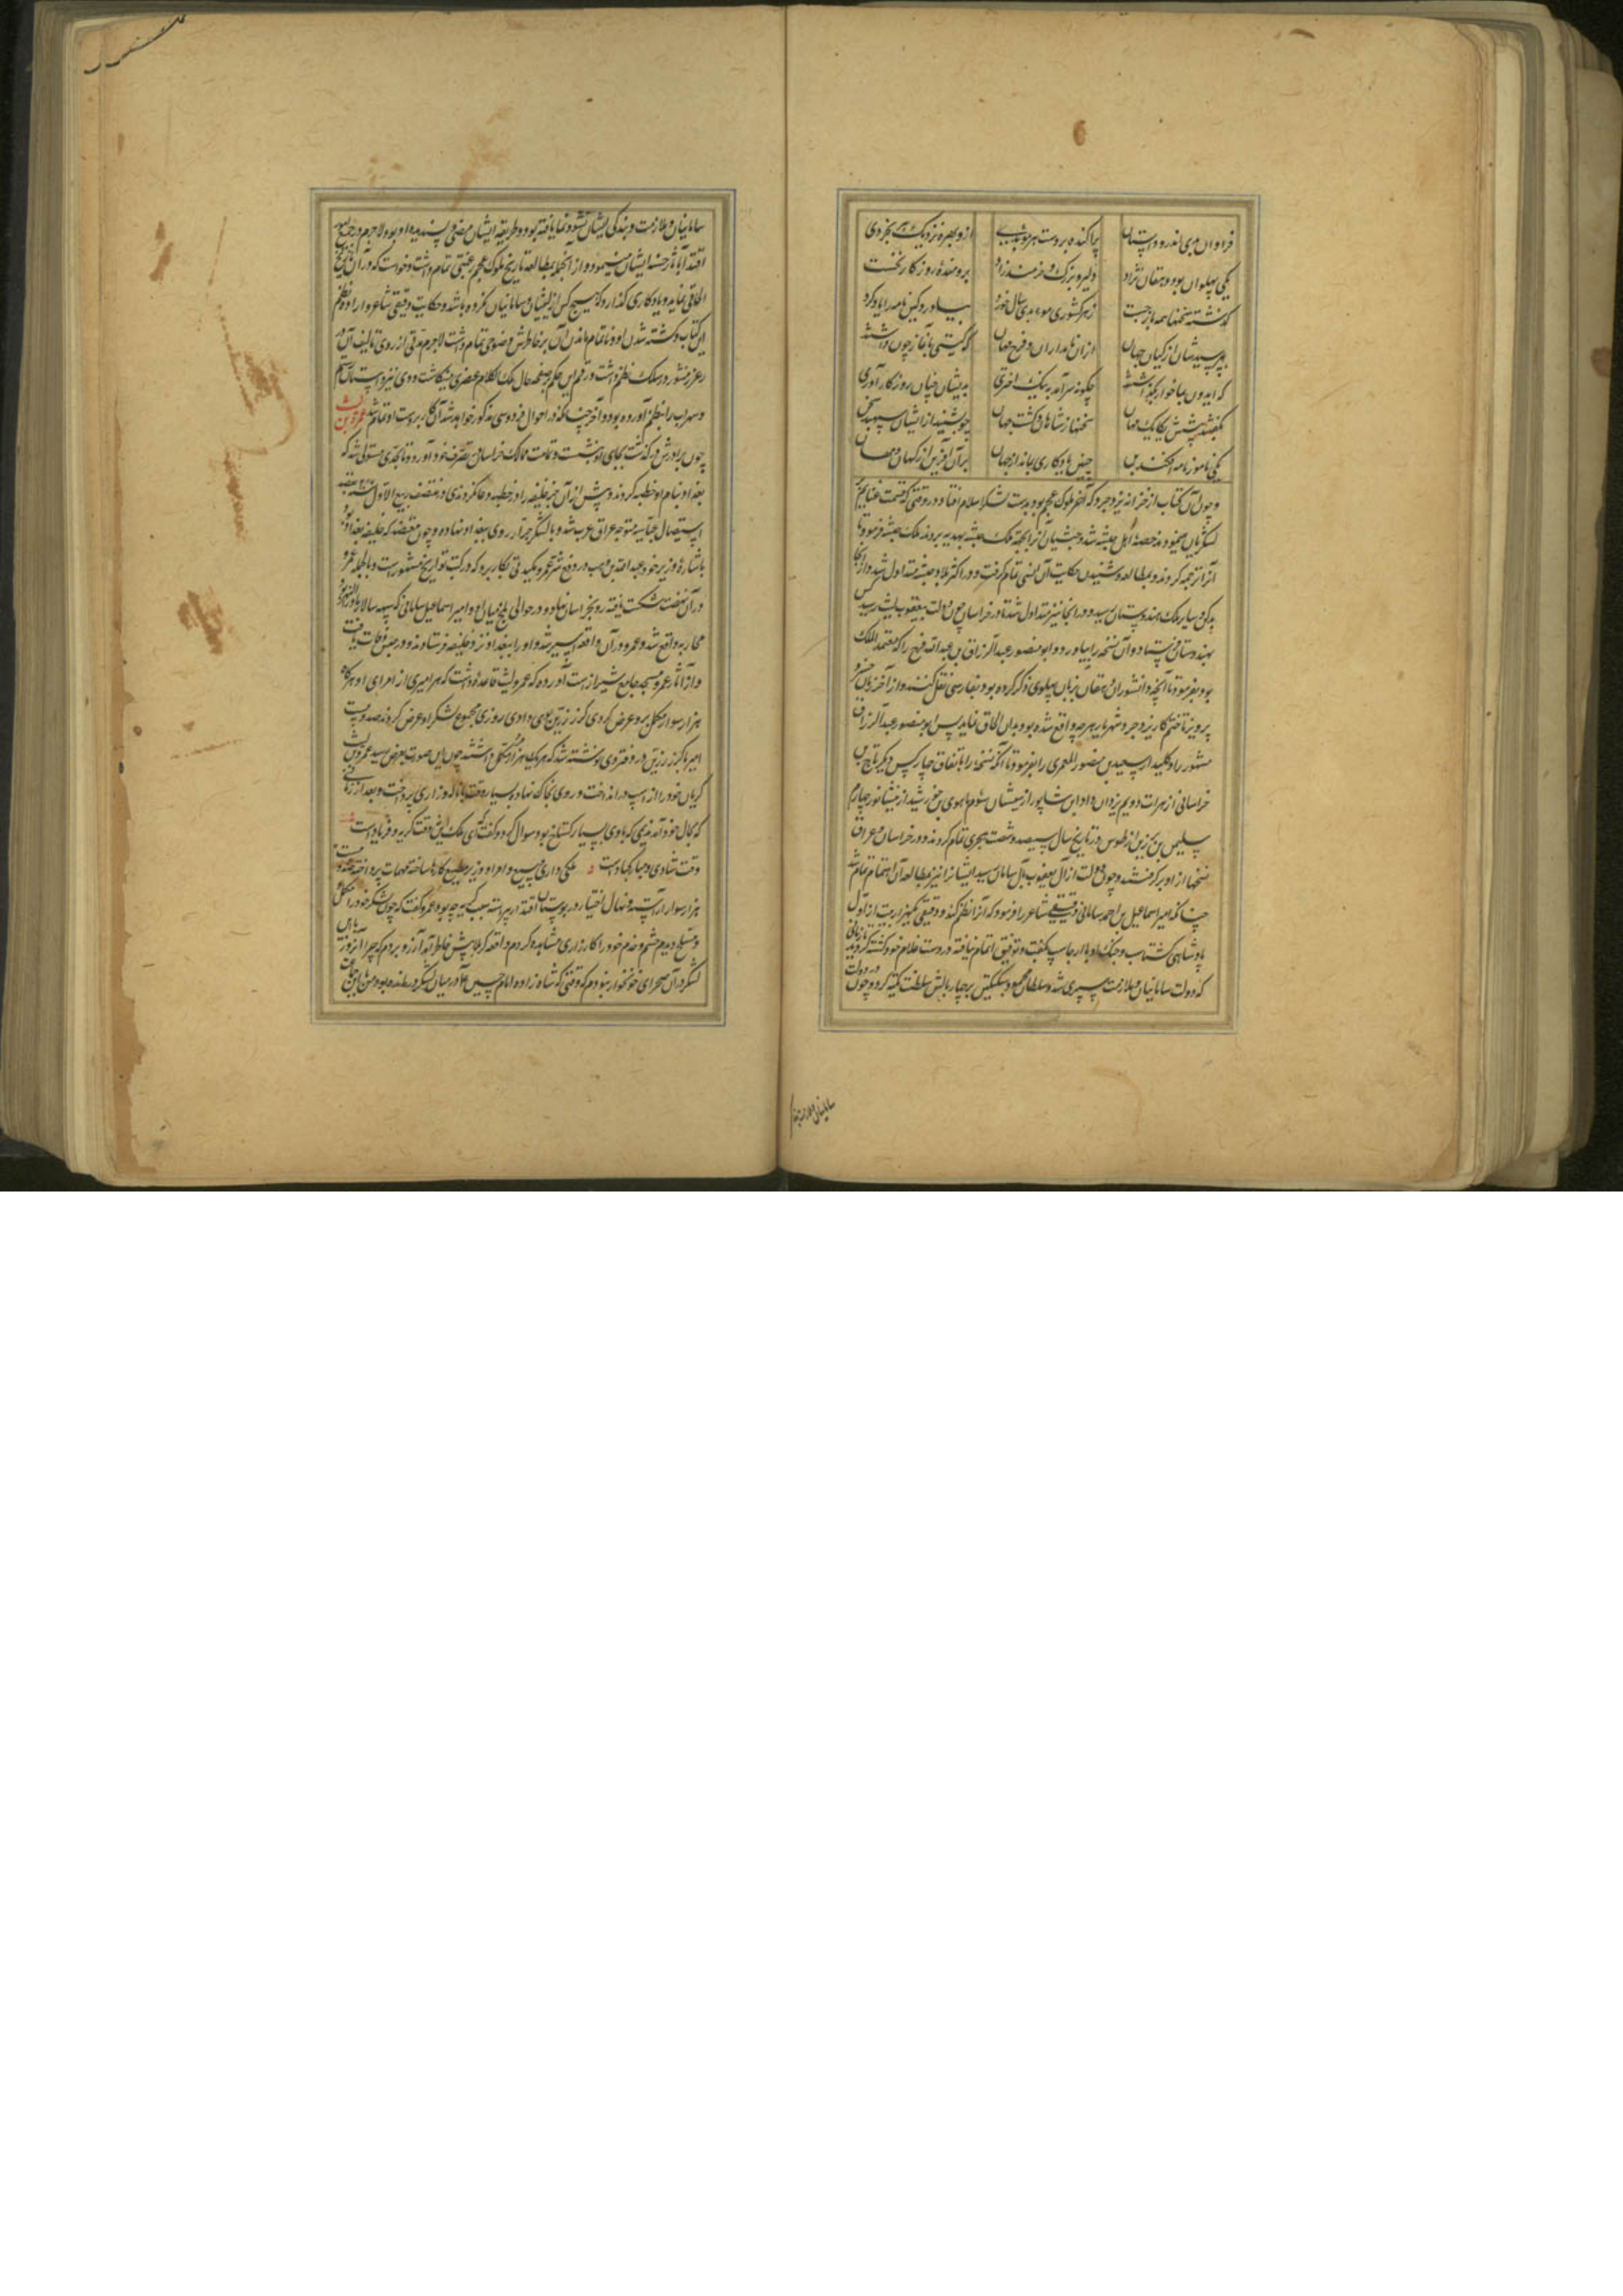 فراوان بدی اندرو داستان پراکنده بر دست هر موبدی ازو بهره نزدیک هر بخردی
یکی پهلوان بود دهقان نژاد دلیر و بزرگ و خردمند و راد برومندهٔ روزگار نخست
گذشته سخنها همه باز جست ز هر کشوری موبدی سال خورد بیاورد و کین نامه را یاد کرد
بپرسیدشان از کیان جهان از ان نامداران و فرخ مهان که گیتی بآغاز چون داشتند
که ایدون بما خوار بگذاشتند چگونه سر آمد به نیک اختری بدیشان چنان روزکار آوری
بگفتند پیشش یکایک مهان سخنها ز شاهان و گشت جهان چو بشنید از ایشان سپهبد سخن
یکی نامور نامه افکند بن چنین یادکاری بماند از جهان بر آن آفرین از کهان و مهان
و چون آن کتاب از خزانه یزدجرد که آخر ملوک عجم بود بدست لشکر اسلام افتاد در وقتی که قسمت غنایم بر
لشکریان مینمودند حصهٔ اهل حبشه شد و حبشیان آنرا بجهة ملک حبشه بهدیه بردند ملک حبشه فرمود تا
آنرا ترجمه کردند و بمطالعه و شنیدن حکایت آن انسی تمام گرفت و در اکثر بلاد حبشه متداول شد و از آنجا
بدکن و سایر ملک هندوستان رسید و در آنجا نیز متداول شد تا در خراسان چون دولت بیعقوب لیث رسید کس
بهندوستان فرستاد و آن نسخه را بیاورد و ابو منصور عبدالرزاق بن عبدالله فرخ را که معتمد الملک
بود بفرمود تا آنچه دانشوران دهقان بزبان پهلوی ذکر کرده بود بفارسی نقل کنند و از آخر زمان خسرو
پرویز تا ختم کار یزدجرد شهریار هرچه واقع شده بود بدان الحاق نماید پس ابو منصور عبدالرزاق
خراسانی از هرات دویم یزدان داد ابن شاپور از سیستان سئوم ماهوی بن خورشید از نیشاپور چهارم
سلیمن بن برزین از طوس در تاریخ سال سیصد و شصت هجری تمام کردند و در خراسان و عراق
نسخها از او بر گرفتند و چون دولت از آل یعقوب بآل سامان رسید ایشانرا نیز بمطالعه آن اهتمام تمام شد
چنانکه امیر اسماعیل بن احمد سامانی دقیقی شاعر را فرمود که آنرا نظم کند و دقیقی یکهزار بیت از اول
پادشاهی کشتاسب و جنک او با ارجاسپ بگفت و توفیق اتمام نیافته در دست غلام خود کشته گردید تا زمانی
که دولت سامانیان سپری شد و سلطان محمود سبکتکین بر چهار بالش سلطنت تکیه کرد و چون در دولت
سامانیان و ملازمت و بندکی ایشان نشو و نما یافته بود و طریقه ایشان مرضی و پسندیده او بود لاجرم در جمیع امور
اقتدا بآثار حسنه ایشان مینمود و از آنجمله بمطالعه تاریخ ملوک عجم رغبتی تمام داشت و خواست که در آن تاریخ
الحاقی نماید و یادکاری گذارد که هیچ کس از لیثیان و سامانیان نکرده باشد و حکایت دقیقی شاعر و اراده نظم
این کتاب و کشته شدن او و ناتمام ماندن آن بر خاطرش وضوحی تمام داشت لاجرم مدتی از روی تالیف آن
و سهراب را بنظم آورده بود و آخر چنانکه در احوال فردوسی مذکور خواهد شد آن کار بر دست او تمام شد عمرو بن لیث
چون برادرش در گذشت بجای او نشست و تمامت ممالک خراسان بتصرف خود آورد و تا بحدی مستولی شد که
بغداد بنام او خطبه کردند و پیش از آن جز خلیفه را در خطبه دعا نکردندی در منتصف ربیع الاول سنه
استیصال عباسیه متوجه عراق عرب شد و با لشکر جرار روی ببغداد نهاد و چون معتضد که خلیفه بغداد بود
باشارهٔ وزیر خود عبدالله بن وهب در دفع شر عمرو مکیدتی بکار برد که در کتب تواریخ مشهور است و بالجمله عمرو
در آن نهضت شکست یافته رو بخراسان نهاد و در حوالی بلخ میان او و امیر اسماعیل سامانی که سپه سالار ماوراء النهر بود
محاربه واقع شد و عمرو در آن واقعه اسیر شد و او را ببغداد نزد خلیفه فرستادند و در حبس وفات یافت
و از آثار عمرو مسجد جامع شیراز است آورده که عمرو لیث قاعدهٔ داشت که هر امیری از امرای او هرگاه
هزار سوار مکمل برو عرض کردی گرز زرین بوی دادی روزی مجموع لشکر او عرض کردند صد و بیست
امیر با کرز زرین در دفتر وی نوشته شد که هر یک هزار مرد مکمل داشتند چون این صورت بعرض رسید عمرو لیث
گریان خود را از اسپ در انداخت و روی بخاک نهاد و بسیار وقت با ناله و زاری پرداخت و بعد از زمانی
که بحال خود آمد ندیمی که با وی بسیار کستاخ بود سوال کرد و گفت ای ملک این چه وقت گریه و فریاد است
وقت شادی و مبارکباد است ملکی داری وسیع و امرا و وزیر مطیع کارها ساخته مهمات پرداخته
هزار سوار آراسته و نهال اختیار در بوستان اقتدار پیراسته سبب گریه چه بود عمرو گفت که چون لشکر خود را مکمل
و مسلح دیدم حشم و خدم خود را کارزاری مشاهده کردم واقعه کربلا پیش خاطر آمد آرزو بردم که چرا آنروز با این
لشکر در آن صحرای خونخوار نبودم که وقتی که شاه زاده امام حسین را در میان لشکر در مانده بود من با این جماعت
سامانیان و ملازمت